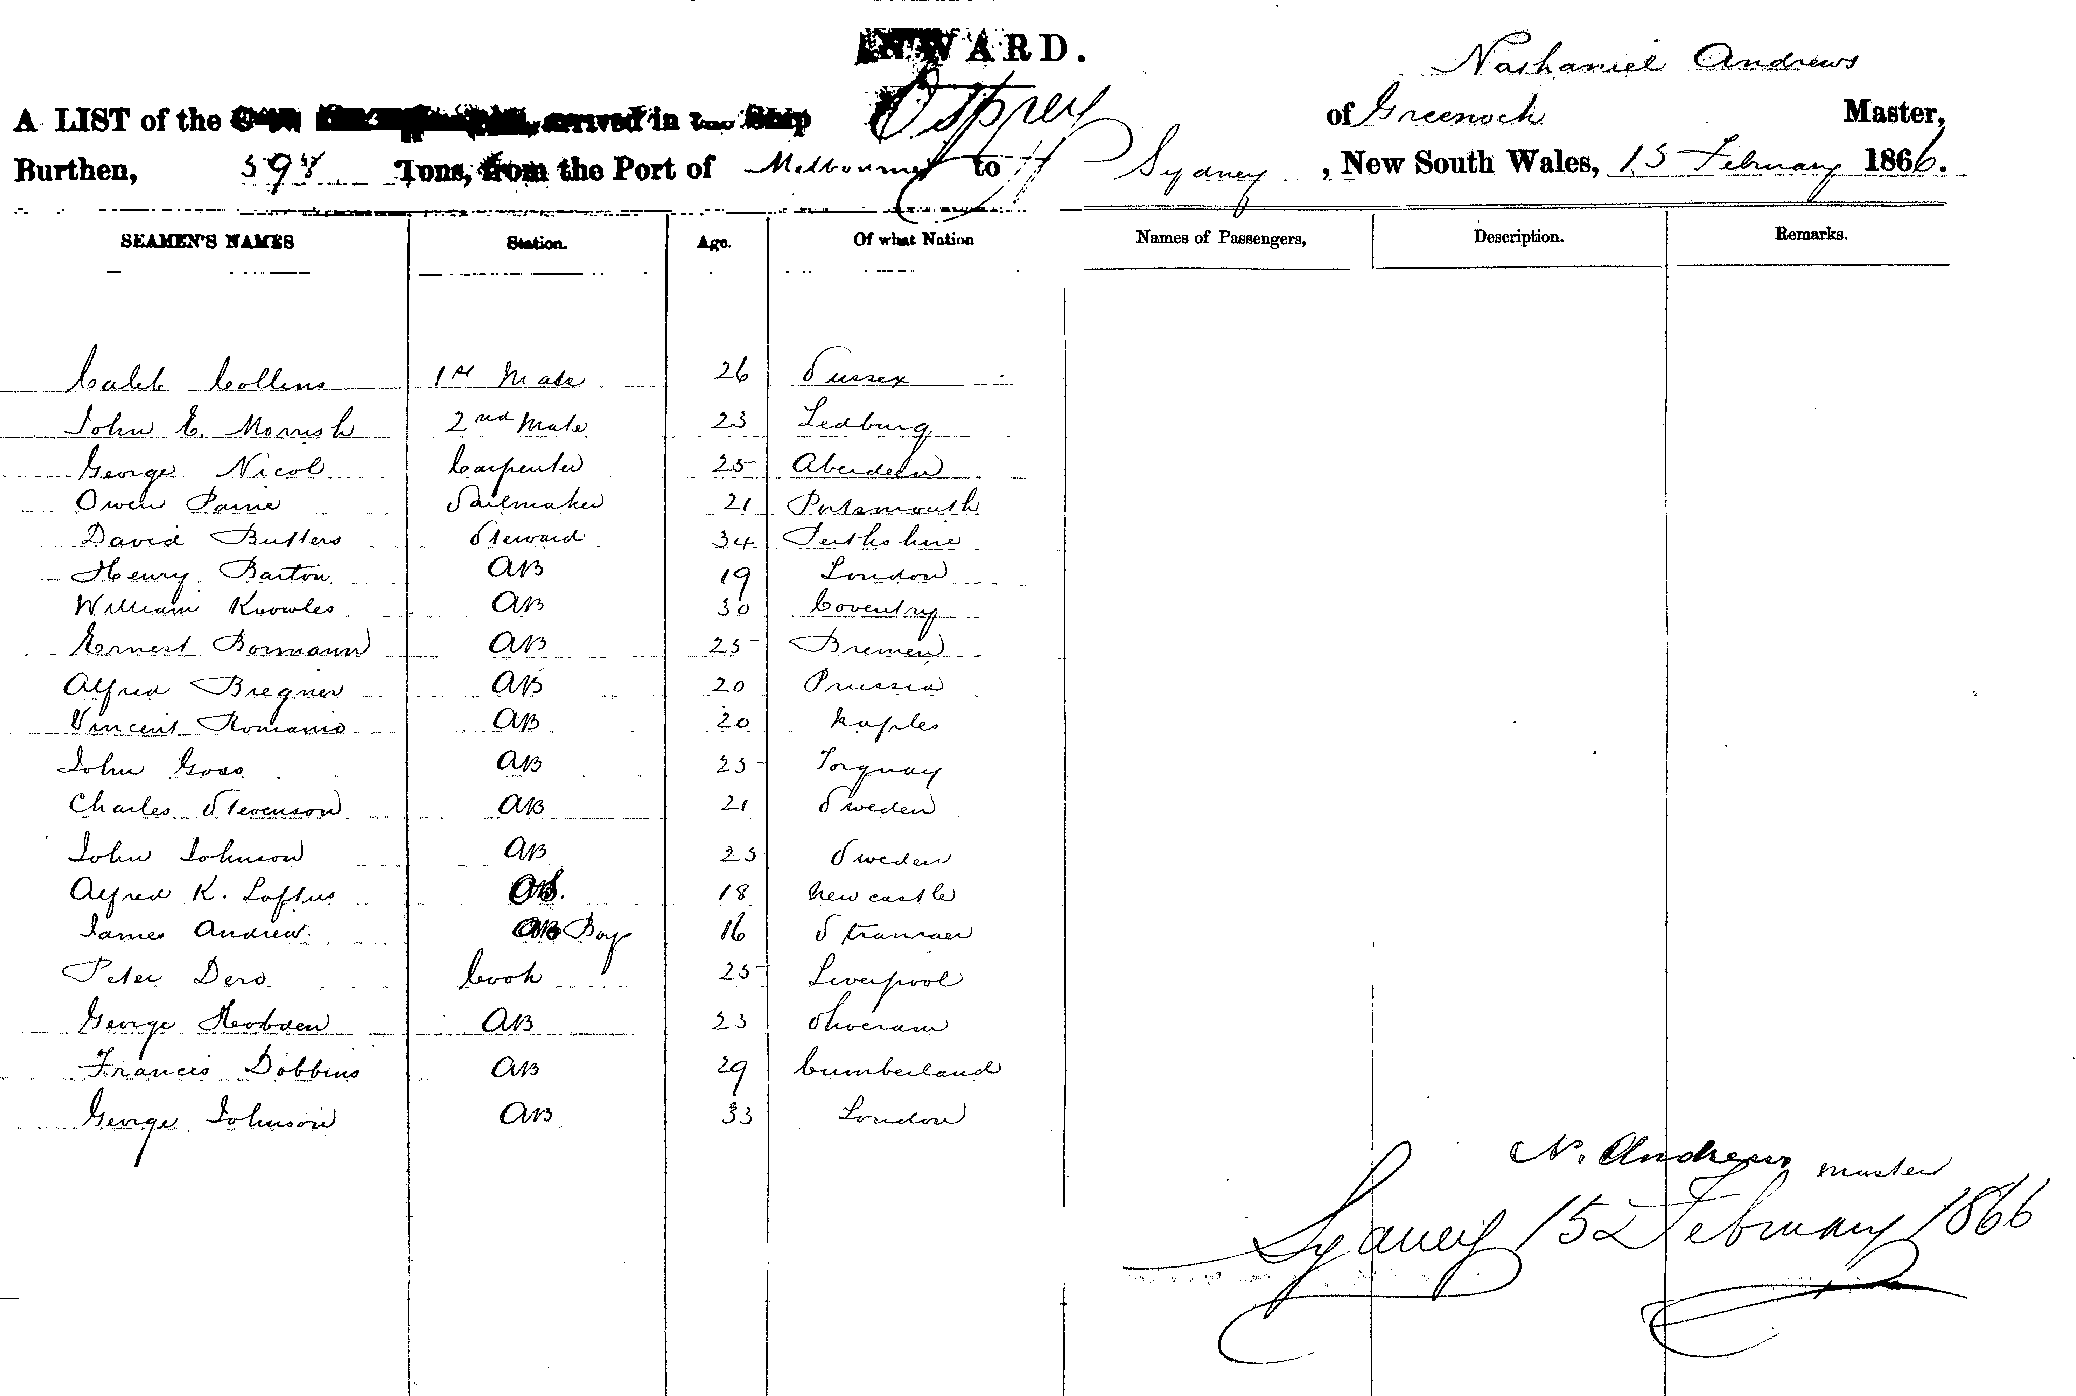 INWARD.
Nathaniel Andrews
A LIST of the arrived in the Ship Osprey of Greenock Master,
Burthen, 598 Tons, from the Port of Melbourne to Sydney, New South Wales, 15 February 1866.
SEAMEN'S NAMES Station. Age. Of what Nation Names of Passengers, Description. Remarks.
Caleb Collins 1st Mate 26 Sussex
John E. Morrish 2nd Mate 23 Ledbury
George Nicol Carpenter 25 Aberdeen
Owen Paine Sailmaker 21 Portsmouth
David Butters Steward 34 Perthshire
Henry Barton AB 19 London
William Knowles AB 30 Coventry
Ernest Bormann AB 25 Bremen
Alfred Bregner AB 20 Prussia
Vincent Romanio AB 20 Naples
John Goss AB 25 Torquay
Charles Stevenson AB 21 Sweden
John Johnson AB 23 Sweden
Alfred K. Loftus OS. 18 Newcastle
James Andrew Boy 16 Stranraer
Peter Dero Cook 25 Liverpool
George Hobden AB 23 Shoreham
Francis Dobbins AB 29 Cumberland
George Johnson AB 33 London
N. Andrews master
Sydney 15 February 1866